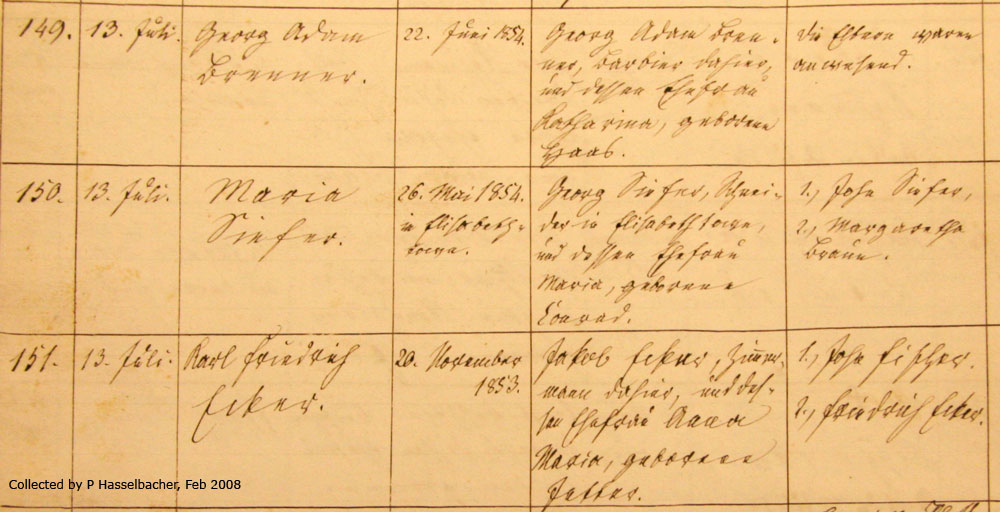 149. 13. Juli. Georg Adam
Brenner.
22. Juni 1854.
Georg Adam Bren-
ner, Barbier dahier,
und dessen Ehefrau
Katharina, geborene
Haas.
Die Eltern waren
anwesend.
150. 13. Juli. Maria
Siefer.
26. Mai 1854.
in Elisabeth-
town.
Georg Siefer, Schnei-
der in Elisabethtown,
und dessen Ehefrau
Maria, geborene
Conrad.
1., Joh. Siefer,
2., Margaretha
Braun.
151. 13. Juli. Karl Friedrich
Ecker.
20. November
1853.
Jakob Ecker, Zimmer-
mann dahier, und des-
sen Ehefrau Anna
Maria, geborene
1., Joh. Fischer.
2., Friedrich Ecker.
Collected by P Hasselbacher, Feb 2008